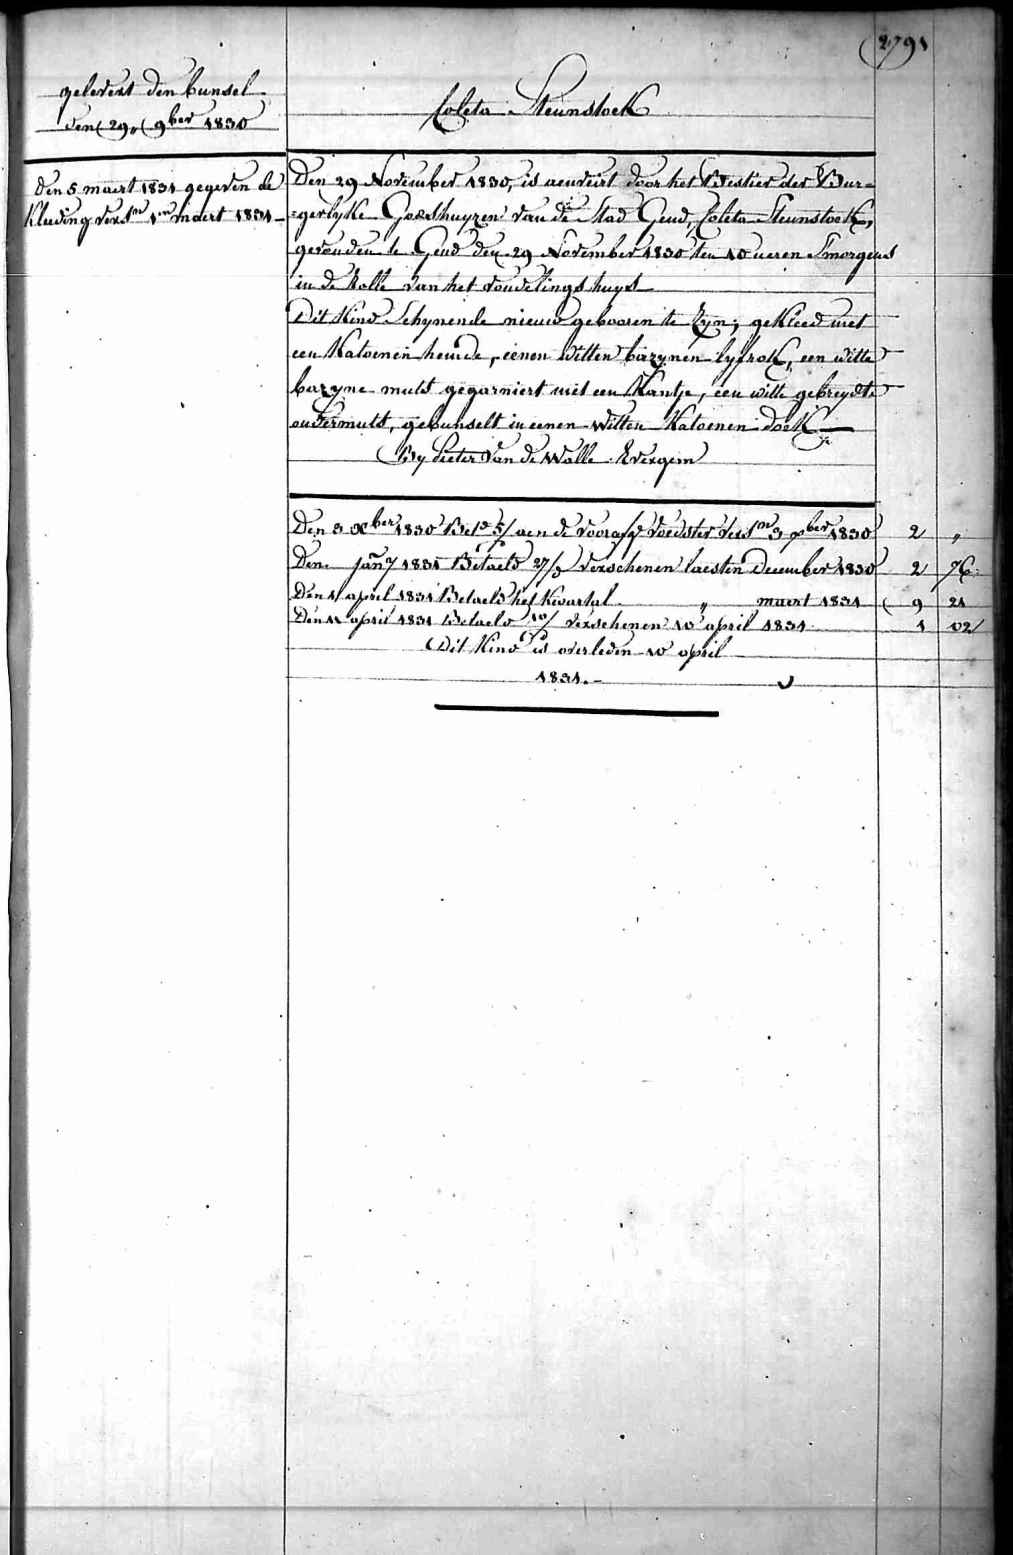 2791
gelevert den bunsel
den 29 9ber 1830
Coleta Steunstock
den 5 maert 1831 gegeven de
kleeding versn 1en maert 1831
Den 29 November 1830, is aenveirt door het Bestier der Bur=
=gerlyke Godshuyzen van de Stad Gend, Coleta Steunstock,
gevonden te Gend den 29 November 1830 ten 10 ueren Smorgens
in de Rolle van het vondelingshuys
Dit Kind Schynende nieuw gebooren te zyn; gekleed met
een Katoenen hemde, eenen witten bazynen lyfrok, een witte
bazyne muts gegarniert met een Kantje, een witte gebreydte
ondermuts, gebunselt in eenen witten Katoenen doek
By Pieter Van de Walle Evergem
Den 3 Xber 1830 Bets aen de voedster versn 3 Xber 1830 2 "
Den jany 1831 Betaeld verschenen laesten December 1830 2 76
Den 1 april 1831 Betaeld het Kwartal " maert 1831 9 21
Den 11 april 1831 Betaeld 10/ verschenen 10 april 1831 1 02
Dit Kind is overleden 10 april
1831.